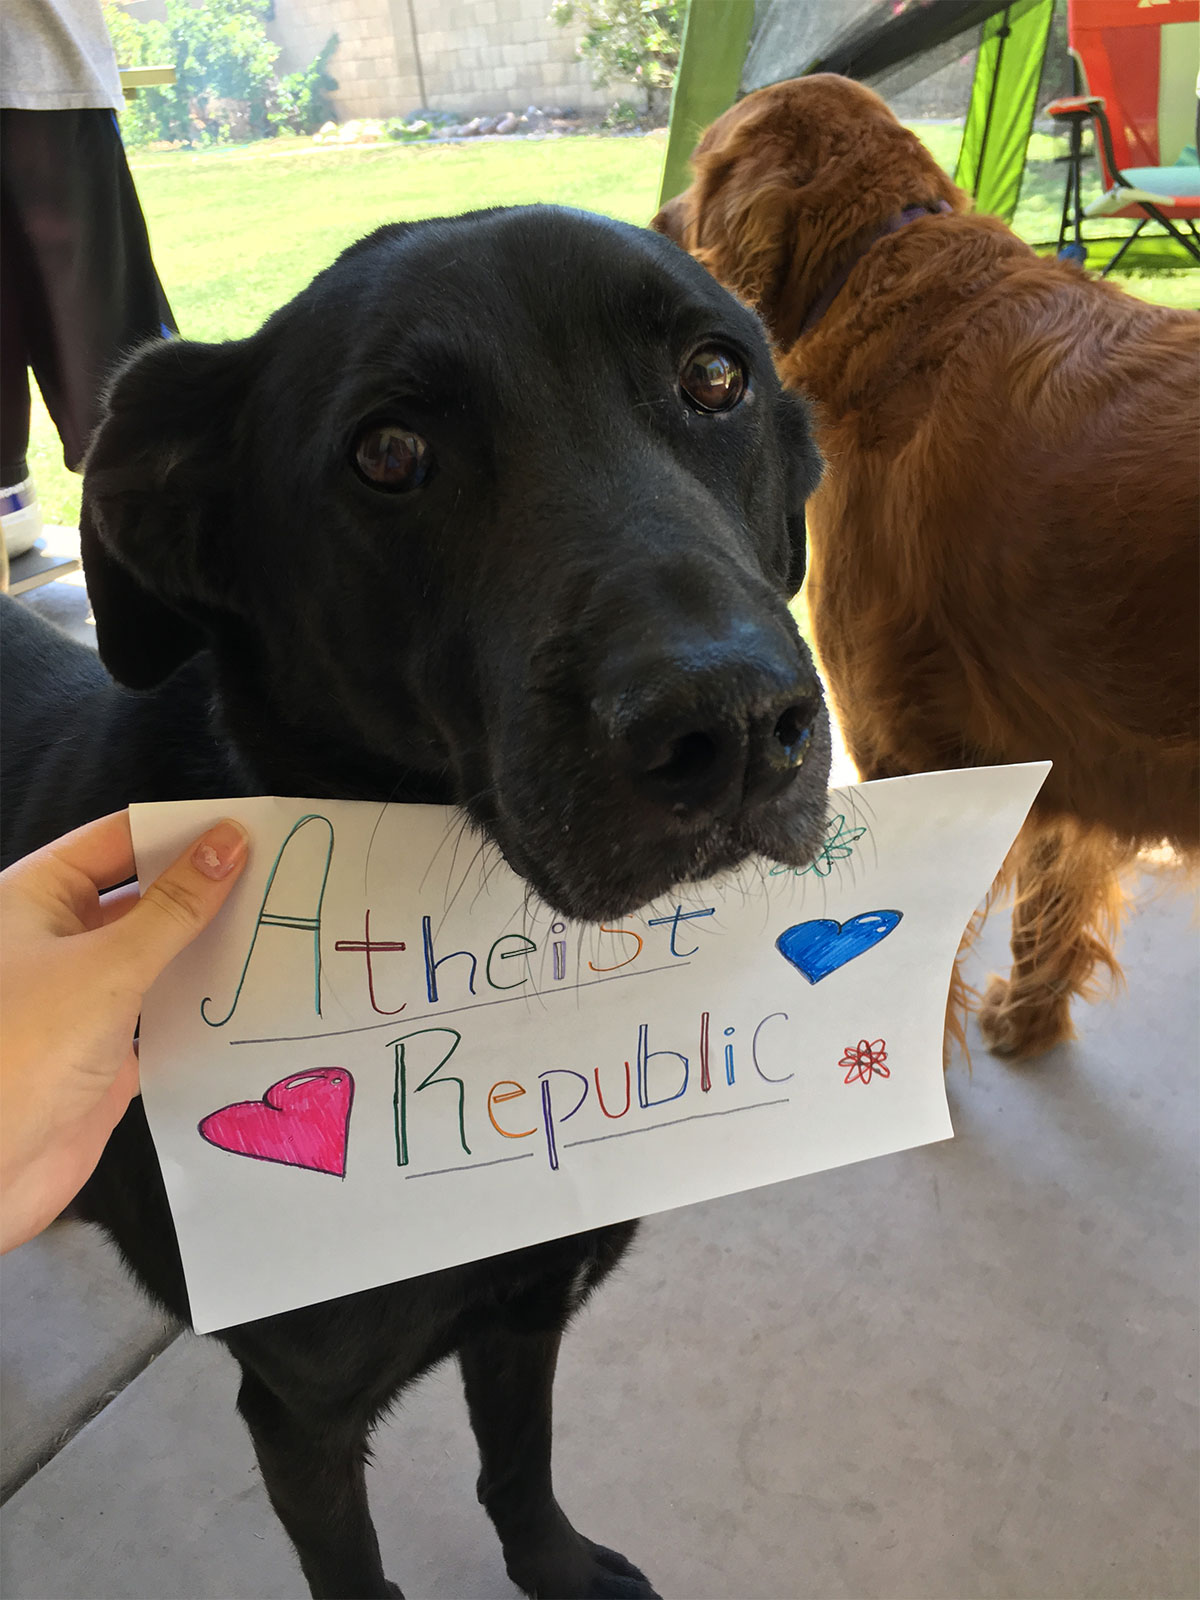 Atheist
Republic